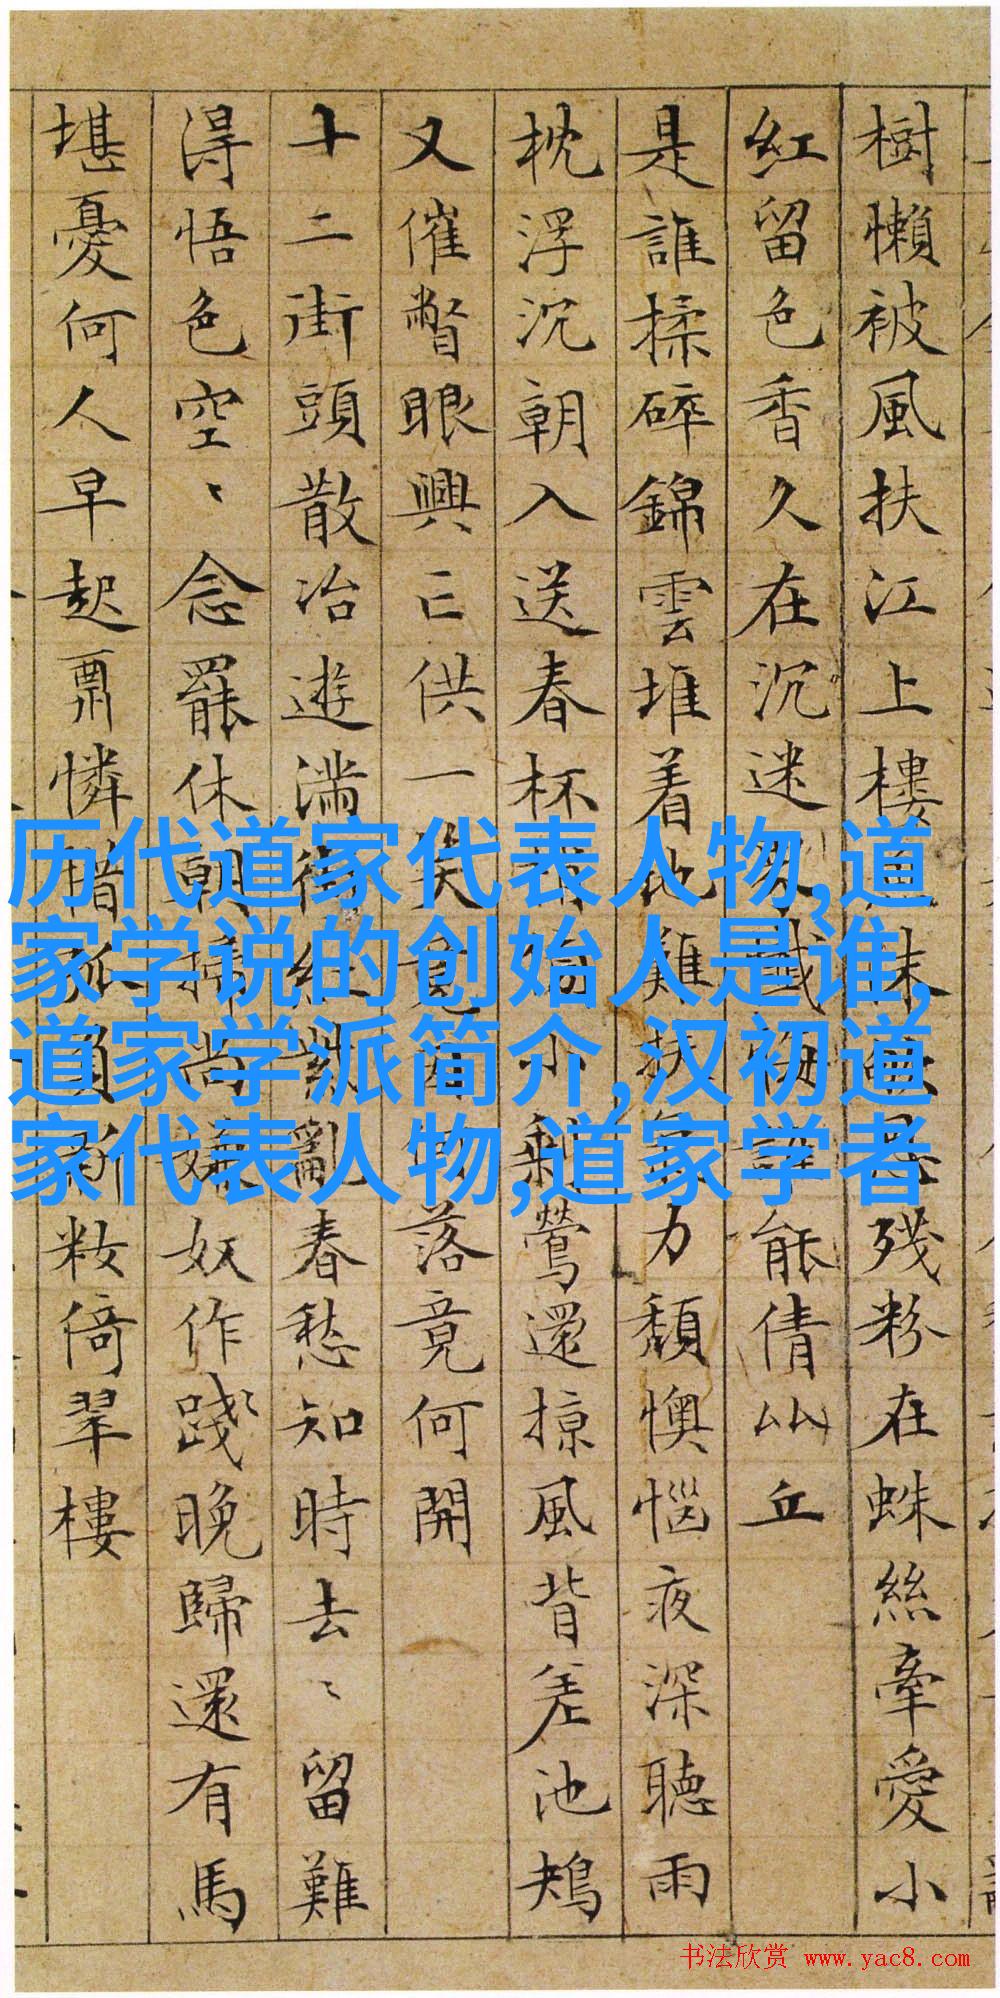 樹懶被風扶江上樓殘粉在蛛絲牽愛小
紅留色香久在沉迷懺悔誰能倩比丘
是誰揉碎錦雲堆着地難扶氣力頹懊惱夜深聽雨
枕浮沉朝入送春杯剩鶯還掠風背差池鳺
又催瞥眼興亡供一笑竟因何落竟何開
十二街頭散冶遊滿街紅紫亂春愁知時去〻留難
得悟色空〻念罷休朝掃尚嫌奴作踐晚歸還有馬
堪憂何人早起憐惜孤負新妝倚翠樓
历代道家代表人物,道
家学说的创始人是谁,
道家学派简介,汉初道
家代表人物,道家学者
书法欣赏 www.yac8.com